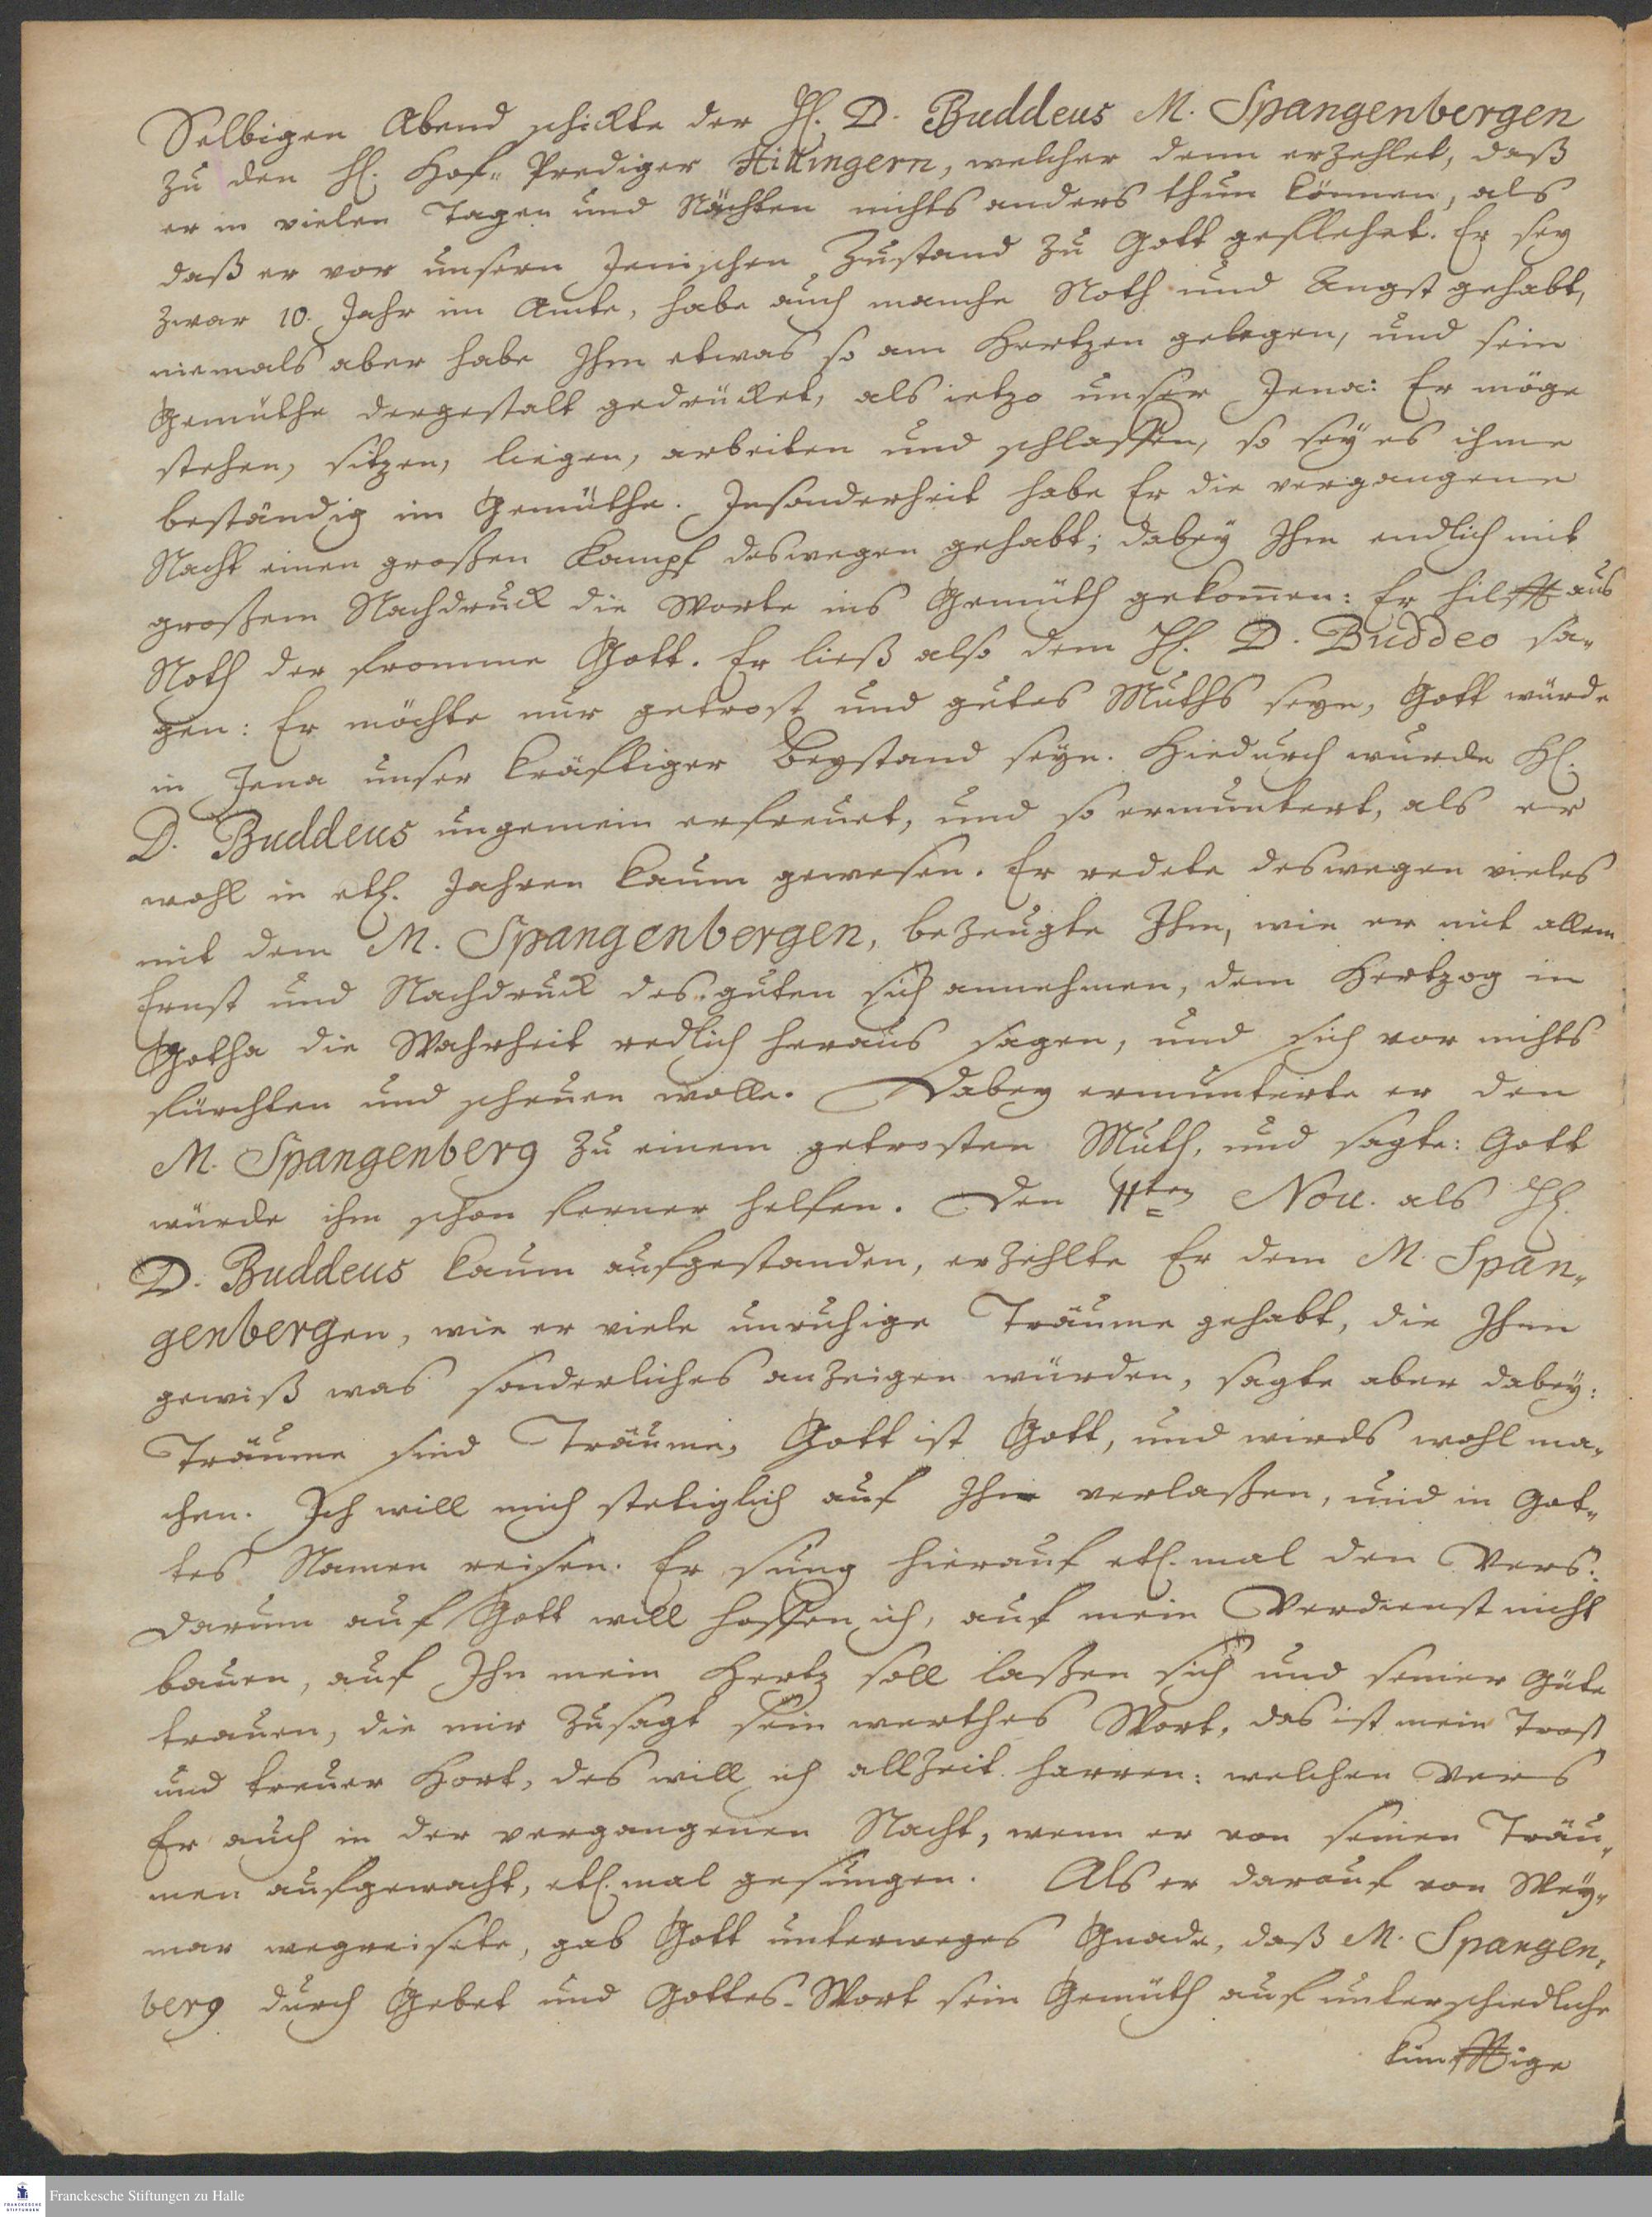 Selbigen Abend schickte der H. D. Buddeus M. Spangenbergen
zu den H. Hof-Prediger Hillingern, welcher denn erzehlet, daß
er in vielen Tagen und Nächten nichts anders thun können, als
daß er vor unsern Jenischen Zustand zu Gott geflehet. Er sey
zwar 10. Jahr im Amte, habe auch manche Noth und Angst gehabt,
niemals aber habe Ihm etwas so am Hertzen gelegen, und sein
Gemüthe dergestalt gedrücket, als ietzo unser Jena: Er möge
stehen, sitzen, liegen, arbeiten und schlaffen, so sey es ihme
beständig im Gemüthe. Insonderheit habe Er die vergangene
Nacht einen großen Kampf deswegen gehabt; dabey Ihm endlich mit
großem Nachdruck die Worte ins Gemüth gekom̅en: Er hilfft aus
Noth der fromme Gott. Er ließ also dem H. D. Buddeo sa-
gen: Er möchte nur getrost und gutes Muths seyn, Gott würde
in Jena unser kräftiger Beystand seyn. Hiedurch wurde H.
D. Buddeus ungemein erfreuet, und so ermuntert, als er
wohl in etl. Jahren kaum gewesen. Er redete deswegen vieles
mit dem M. Spangenbergen, bezeugte Ihm, wie er mit allem
Ernst und Nachdruck des guten sich annehmen, dem Hertzog in
Gotha die Wahrheit redlich heraus sagen, und sich vor nichts
fürchten und scheuen wolle. Dabey ermunterte er den
M. Spangenberg zu einem getrosten Muth, und sagte: Gott
würde ihm schon ferner helfen. Den 11ten Nov. als H.
D. Buddeus kaum aufgestanden, erzehlte Er dem M. Span-
genbergen, wie er viele unruhige Träume gehabt, die Ihm
gewiß was sonderliches anzeigen würden, sagte aber dabey:
Träume sind Träume, Gott ist Gott, und wirds wohl ma-
chen. Ich will mich stetiglich auf Ihn verlaßen, und in Got-
tes Namen reisen. Er sung hierauf etl. mal den Vers:
Darum auf Gott will hoffen ich, auf mein Verdienst nicht
bauen, auf Ihn mein Hertz soll laßen sich und seiner Güte
trauen, die mir zusagt sein werthes Wort, das ist mein Trost
und treuer Hort, des will ich allzeit harren: welchen Vers
Er auch in der vergangenen Nacht, wenn er von seinen Träu-
men aufgewacht, etl. mal gesungen. Als er darauf von Wey-
mar wegreisete, gab Gott unterweges Gnade, daß M. Spangen-
berg durch Gebet und Gottes-Wort sein Gemüth auf unterschiedliche
künfftige
FRANCKESCHE STIFTUNGEN
Franckesche Stiftungen zu Halle